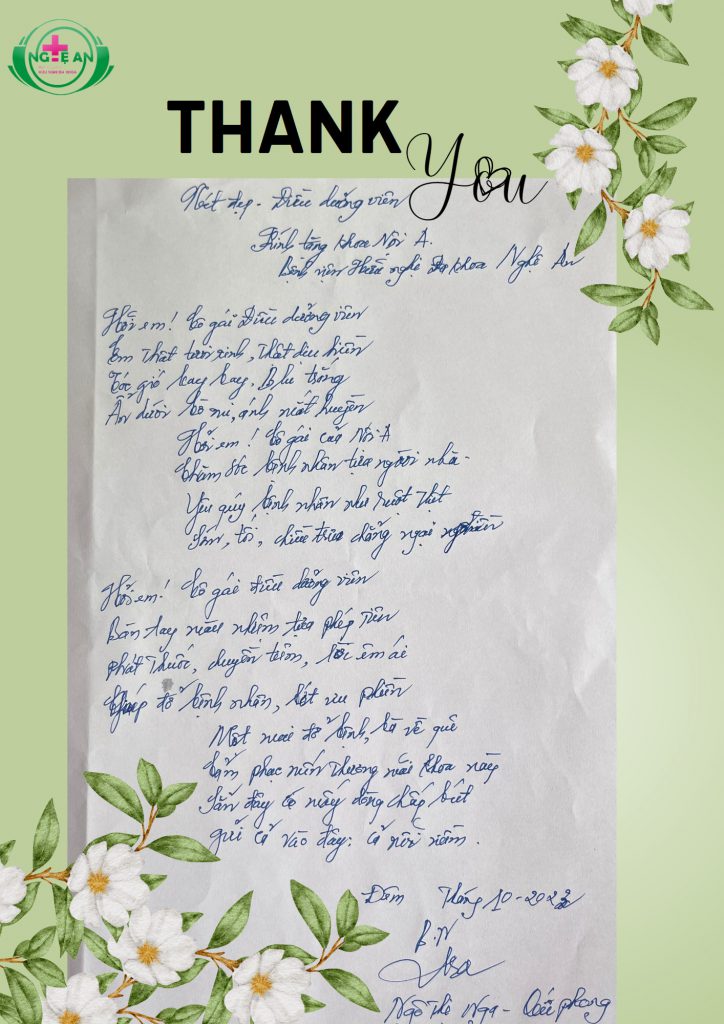 NGHỆ AN
THANK
You
Nét đẹp - Điều dưỡng viên
Kính tặng khoa Nội A.
Bệnh viện Hữu nghị Đa khoa Nghệ An
Hỡi em! Cô gái Điều dưỡng viên
Em thật tươi xinh, thật dịu hiền
Tóc gió bay bay, trắng
Ẩn dưới ánh mắt huyền
Hỡi em! Cô gái của Nội A
Chăm sóc bệnh nhân tựa người nhà.
Yêu quý bệnh nhân như ruột thịt
Sớm, tối, chiều trưa chẳng ngại
Hỡi em! Cô gái điều dưỡng viên
Bàn tay mầu nhiệm tựa phép tiên
phát thuốc, chuyền tiêm, êm ái
Giúp đỡ bệnh nhân, hết ưu phiền
Một mai đỡ bệnh, bà về quê
Cảm phục mến thương mãi khoa này
Sẵn đây có mấy dòng chấp bút
gửi cả vào đây: cả nỗi niềm.
Đêm Tháng 10-2023
B.N
Nga
Ngô Thị Nga - Quế phong